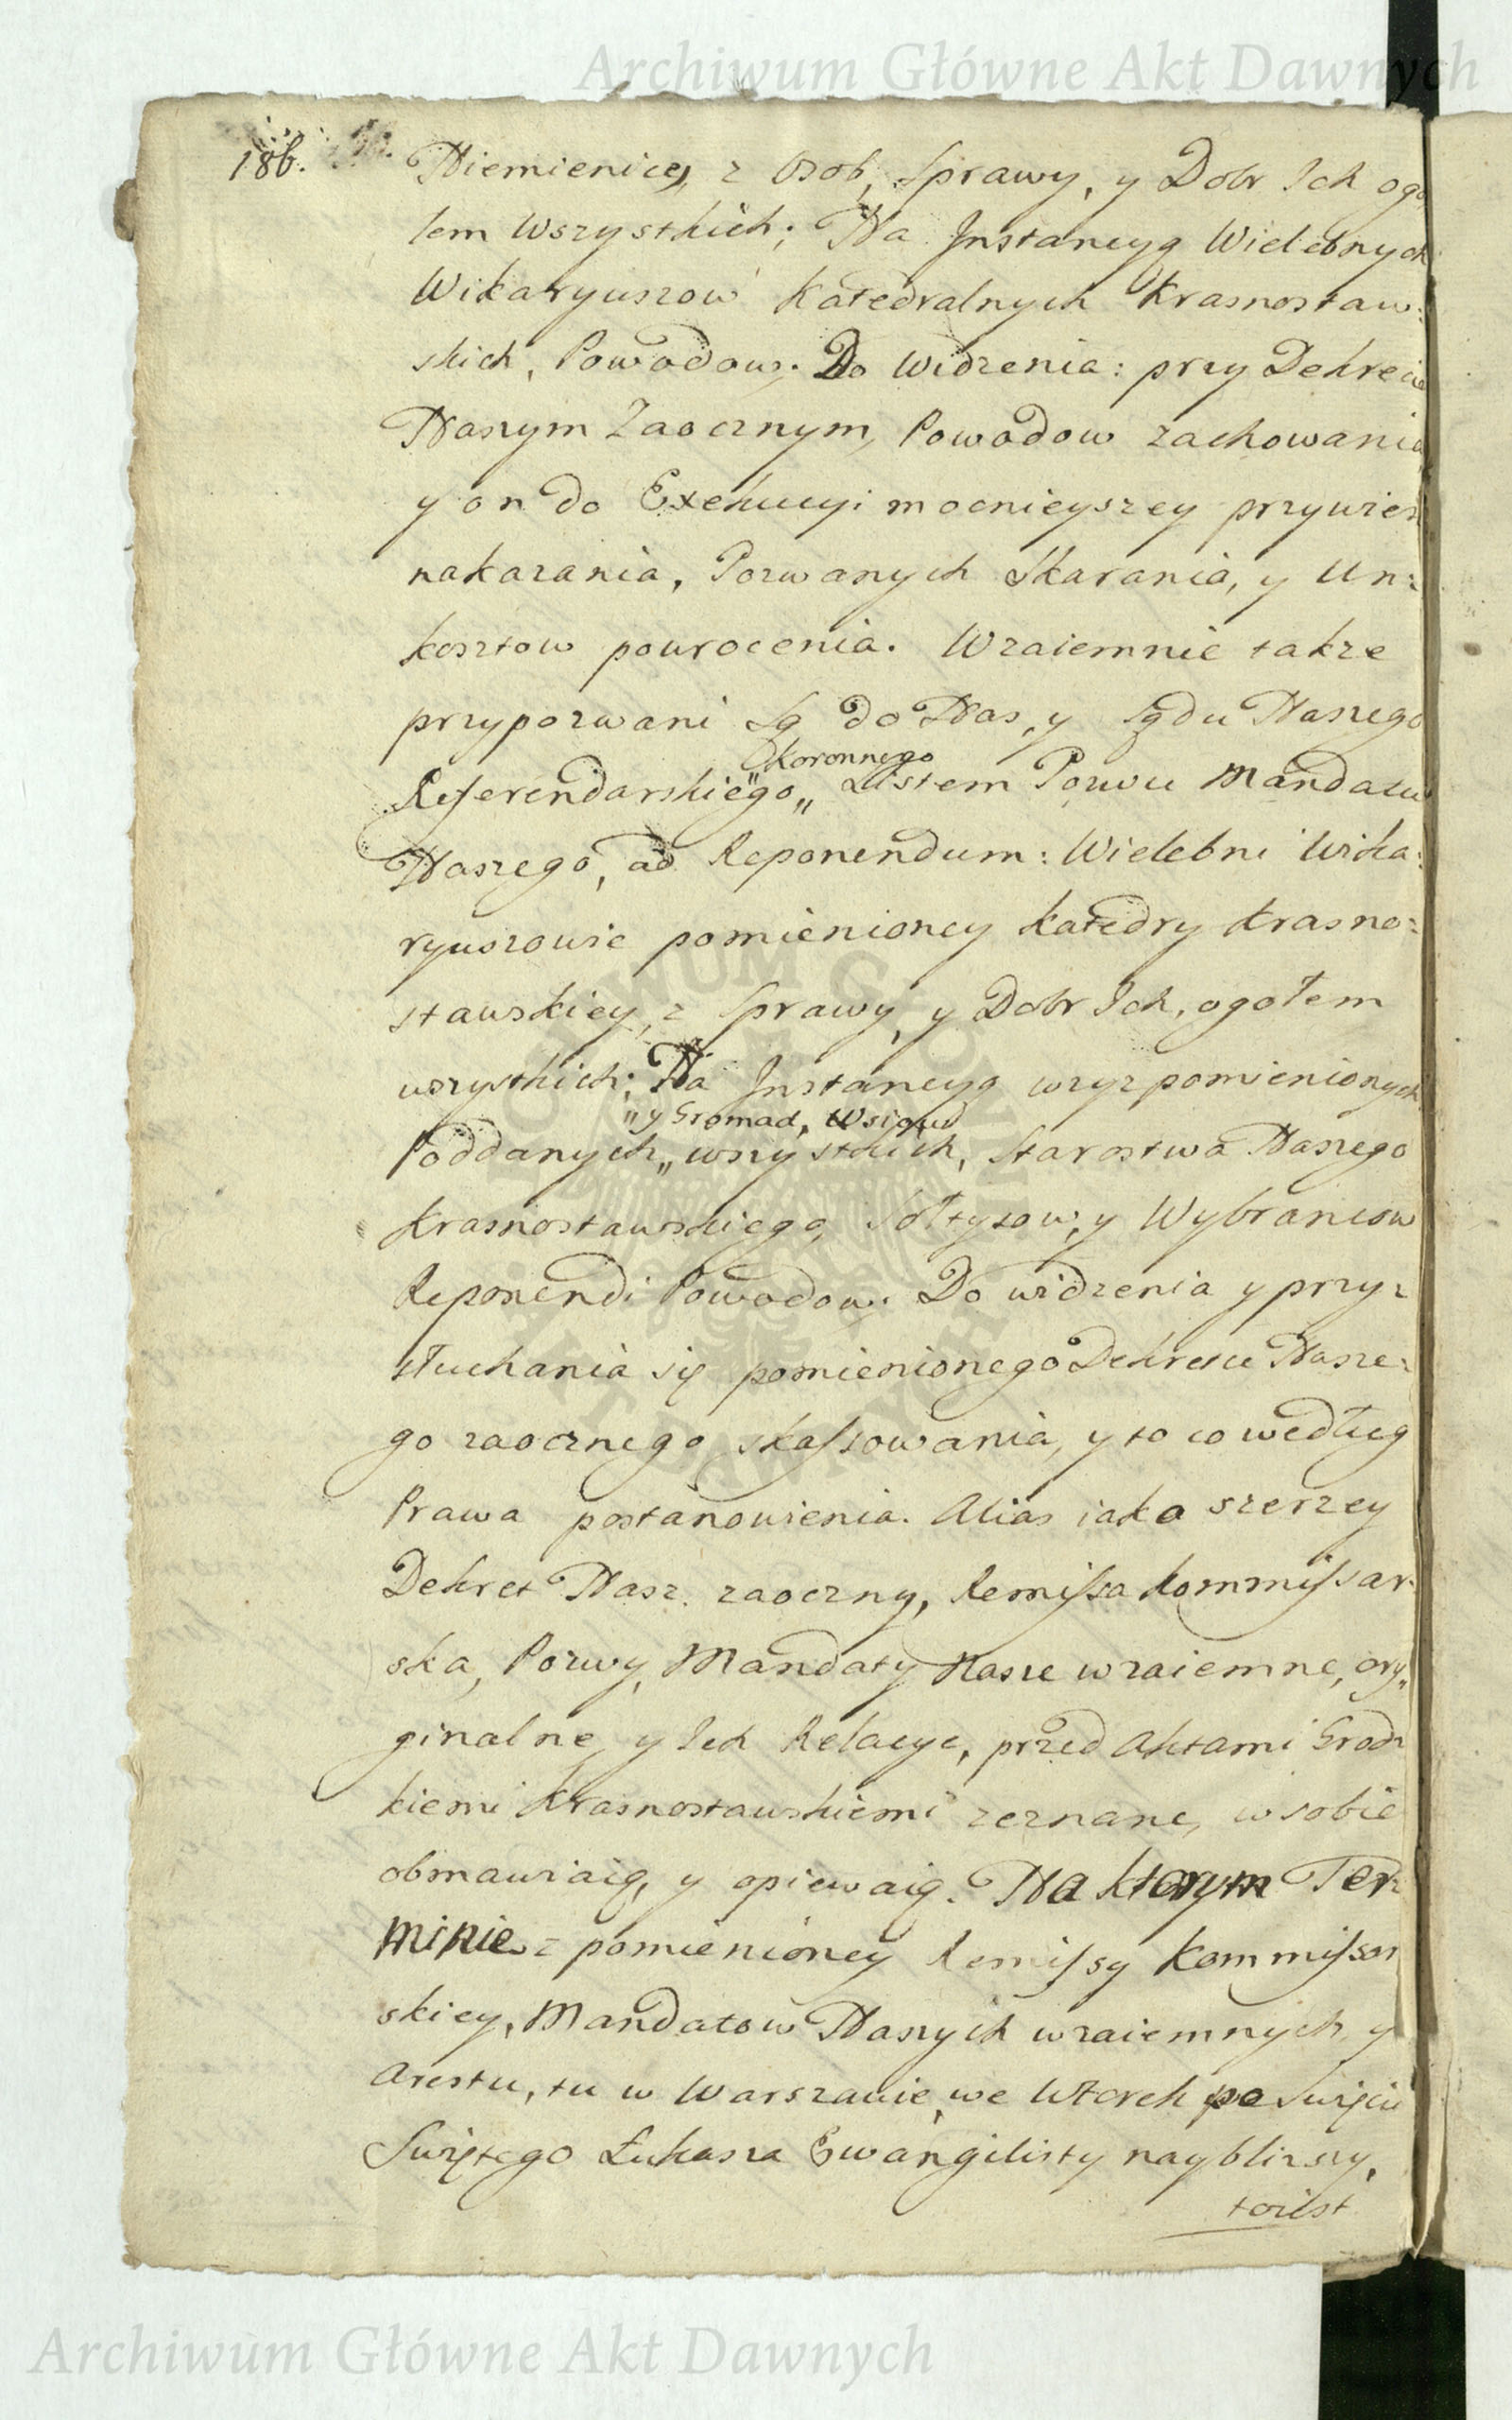 Archiwum Główne Akt Dawnych
186.
Niemienice, z Osob, Sprawy, y Dobr Ich ogo
łem Wszystkich; Na Jnstancyą Wielebnych
Wikaryuszow Katedralnych Krasnostaw:
skich, Powodow; Do Widzenia: przy Dekrecie
Naszym Zaocznym, Powodow zachowania
y on do Exekucyi mocnieyszey przywieść
nakazania, Pozwanych Skarania, y Un:
kosztow powrocenia. Wzaiemnie także
przypozwani są do Nas, y Sądu Naszego
Referendarskiego „ Listem Pozwu Mandatu
„ Koronnego
Naszego, ad Reponendum: Wielebni Wika:
ryuszowie pomienioney Katedry Krasno:
stawskiey, z Sprawy, y Dobr Ich, ogołem
wszystkich; Na Jnstancyą wyz pomienionych
„ y Gromad, Wsiow
Poddanych „ wszystkich, Starostwa Naszego
Krasnostawskiego, Sołtysow, y Wybrancow
Reponendi Powodow; Do widzenia y przy:
słuchania się pomienionego Dekretu Nasze:
go zaocznego skassowania, y to co według
Prawa postanowienia. Alias iako szerzey
Dekret Nasz zaoczny, Remissa Kommissar:
ska, Pozwy, Mandaty Nasze wzaiemne, ory„
ginalne y Ich Relacye, przed Aktami Grodz
kiemi Krasnostawskiemi zeznane, w sobie
obmawiaią, y opiewaią. Na ktorym Ter:
minie z pomienioney Remissy Kommissar
skiey, Mandatow Naszych wzaiemnych y
Arestu, tu w Warszawie, we Wtorek po Swięcie
Swiętego Łukasza Ewangelisty naybliszy,
toiest
Archiwum Główne Akt Dawnych